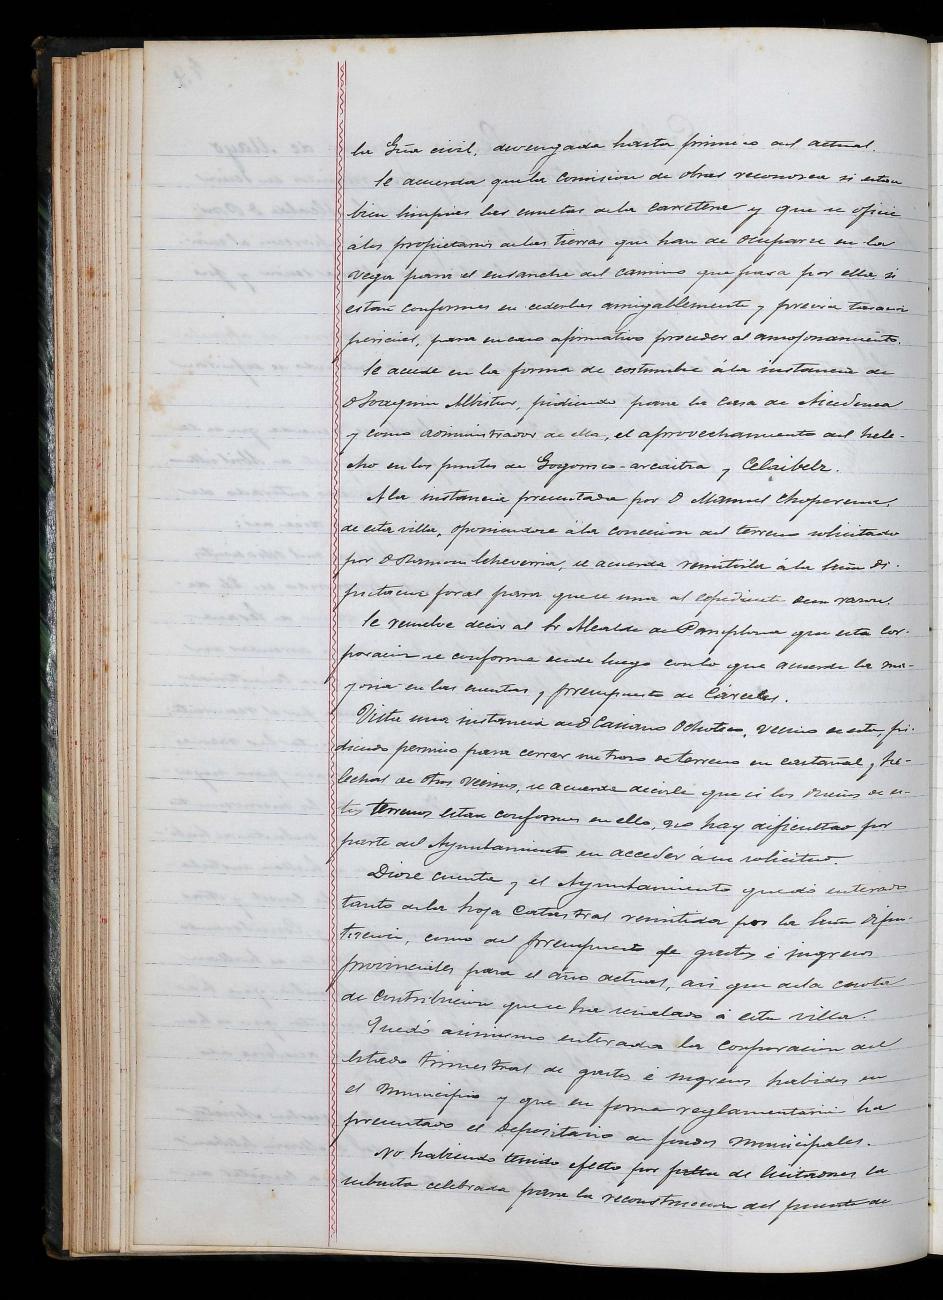 la Gũa civil, devengada hasta primero del actual.
Se acuerda que la Comision de obras reconozca si estan
bien limpias las cunetas dela Carretera y que se oficie
álos propietarios delas tierras que han de ocuparse en la
vega para el ensanche del camino que pasa por ella, si
estan conformes en cederlas amigablemente y previa tasacion
pericial, para en caso afirmativo proceder al amojonamiento.
Se accede en la forma de costumbre ála instancia de
D Joaquin Albistur, pidiendo para la Casa de
y como administrador de ella, el aprovechamiento del hele-
cho en los puntos de y
A la instancia presentada por D Manuel Choperena,
de esta villa, oponiendose ála concesion del terreno solicitado
por D Ramon Echeverria, se acuerda remitirla ála Exma Di-
putacion foral para que se una al Expediente de su razon.
Se resuelve decir al Sr Alcalde de Pamplona que esta Cor-
poracion se conforma desde luego conlo que acuerde la ma-
yoria en las cuentas y presupuesto de Cárceles.
Vista una instancia de D Casiano Ochoteco, vecino de esta, pi-
diendo permiso para cerrar un trozo de terreno en castañal y he-
lechal de otros vecinos, se acuerda decirle que si los dueños de es-
tos terrenos estan conformes en ello, no hay dificultad por
parte del Ayuntamiento en acceder á su solicitud
Diose cuenta y el Ayuntamiento quedó enterado
tanto dela hoja Catastral remitida por la Exma Dipu-
tacion, como del presupuesto de gastos é ingresos
provinciales para el año actual, asi que dela cuota
de contribucion que se ha señalado á esta villa.
Quedó asimismo enterada la corporacion del
Estado trimestral de gastos é ingresos habidos en
el Municipio y que en forma reglamentaria ha
presentado el Depositario de fondos Municipales.
No habiendo tenido efecto por falta de licitadores la
subasta celebrada para la reconstruccion del puente de